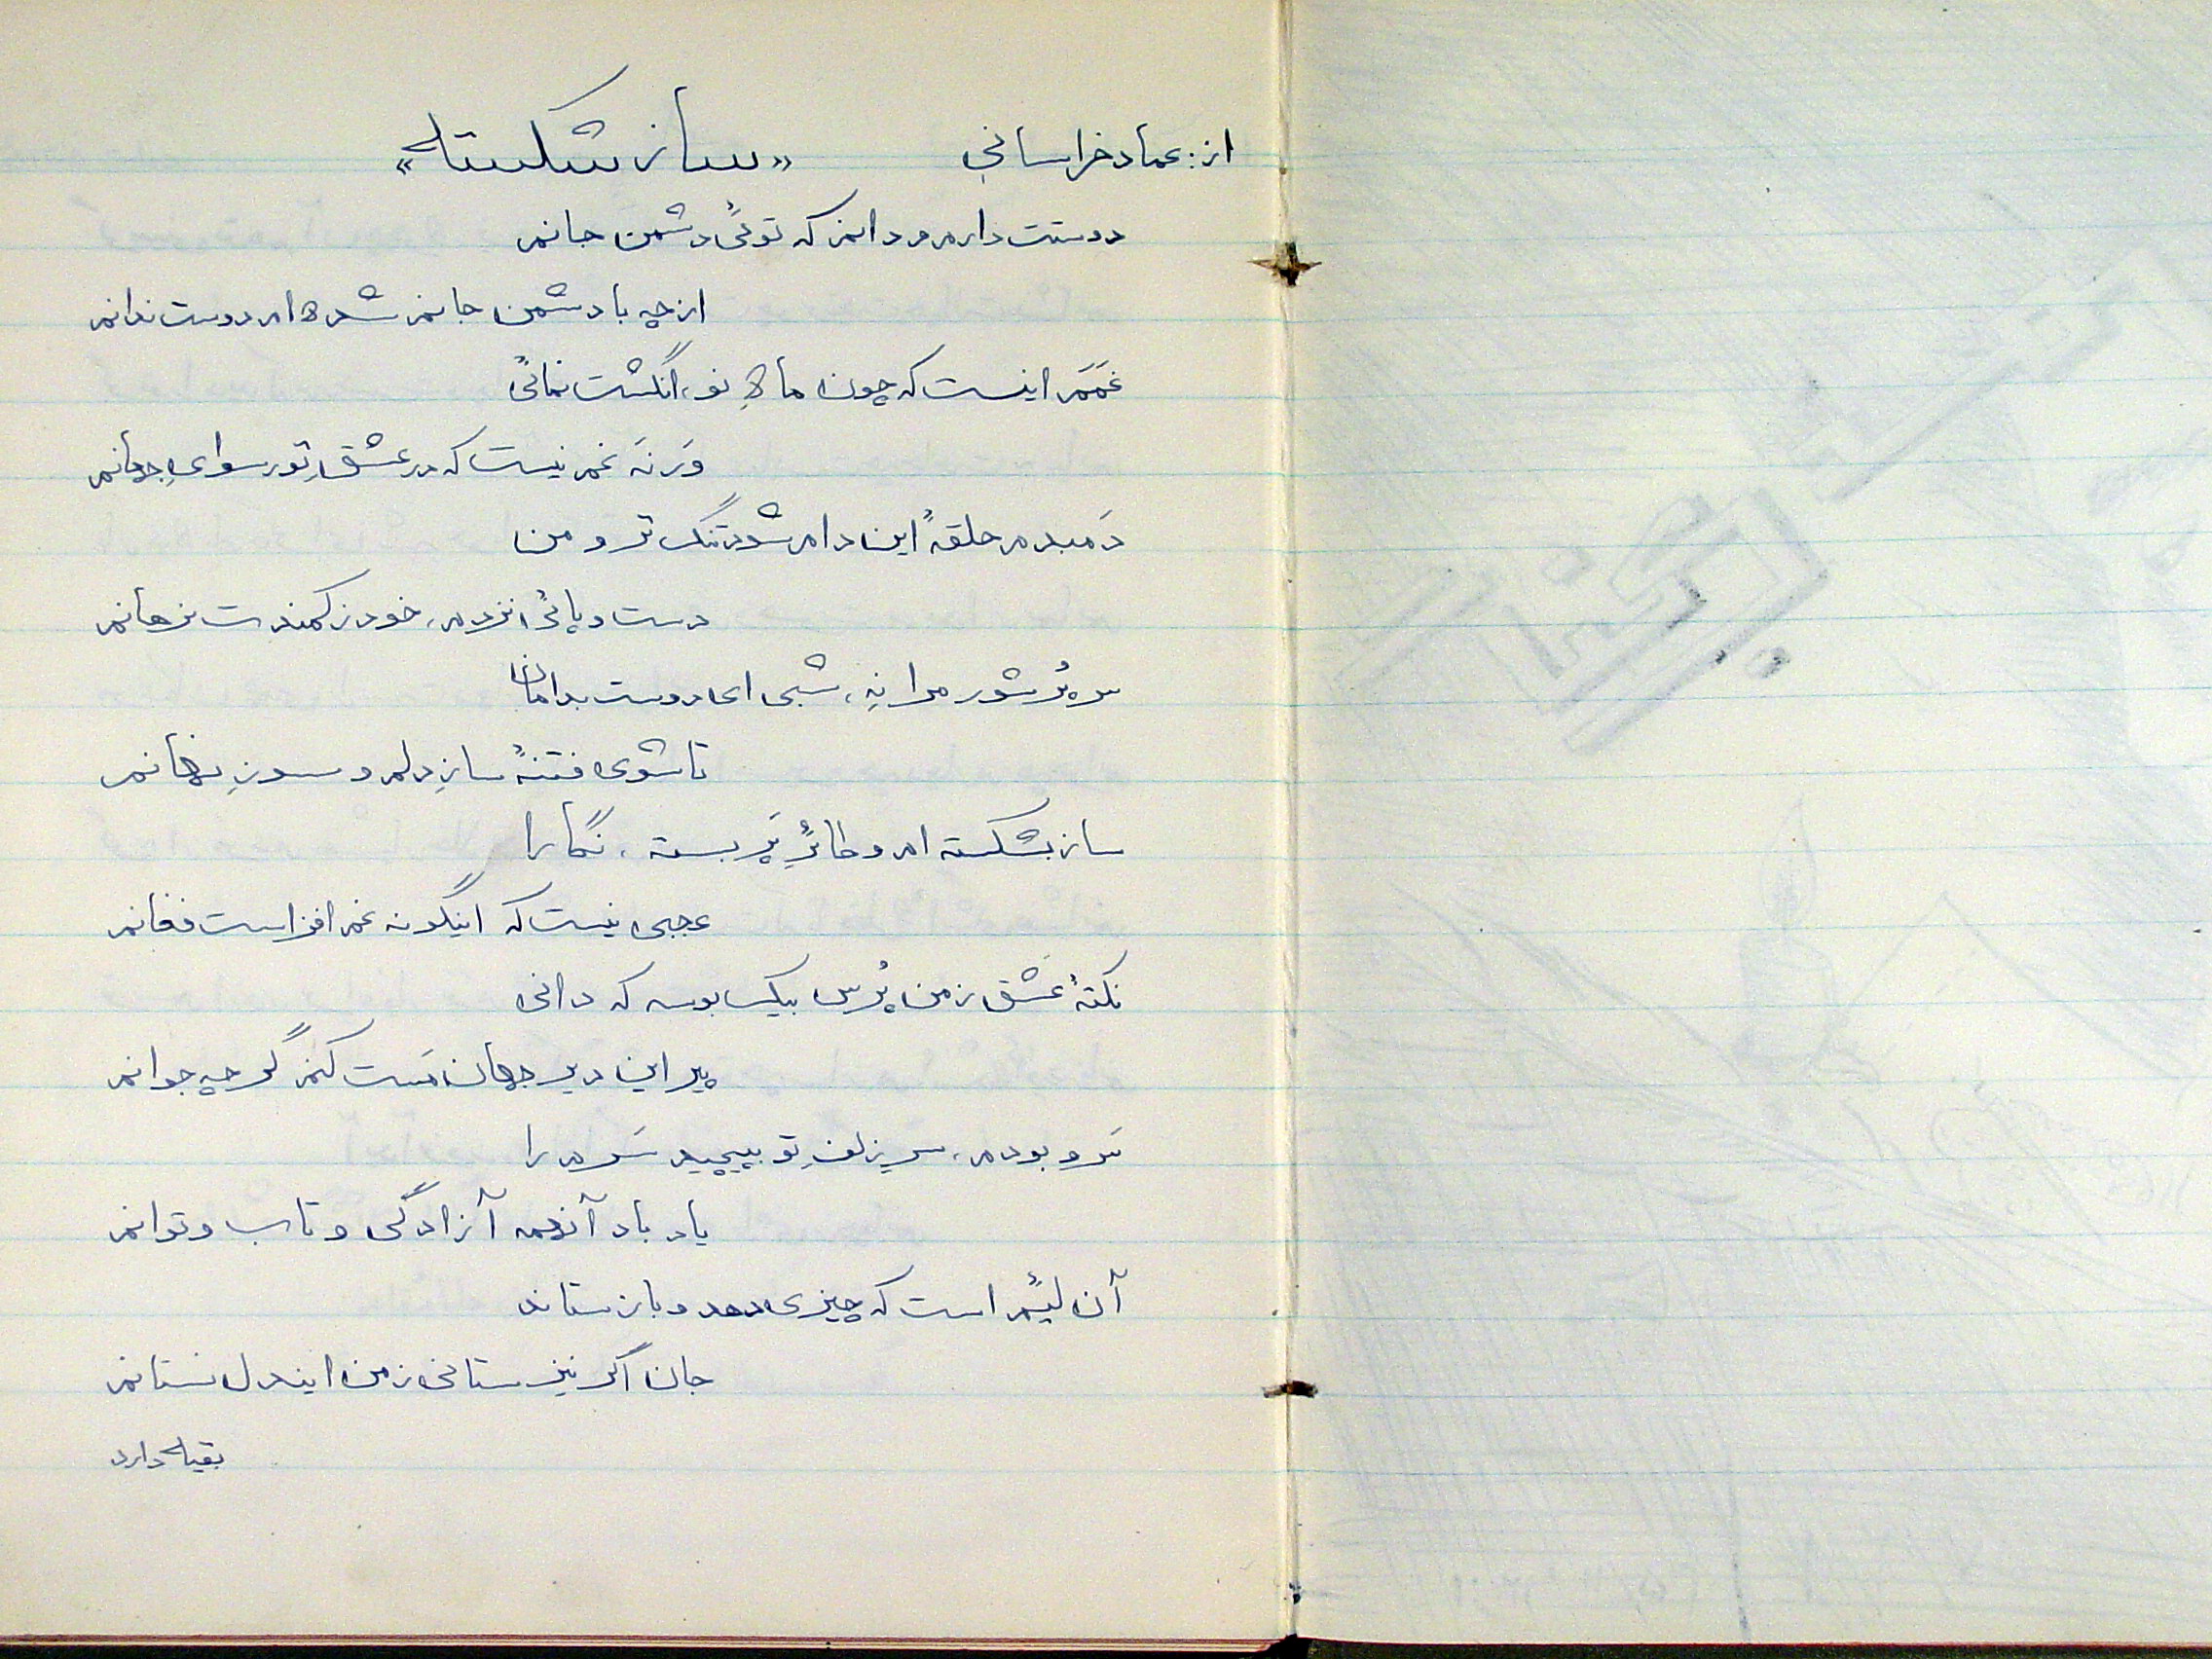 از: عماد خراسانی «ساز شکسته»
دوستت دارم و دانم که توئی دشمن جانم
از چه با دشمن جانم شده ام دوست ندانم
غَمَم اینست که چون ماهِ نو، انگشت نمائی
وَرنَه غم نیست که در عشقِ تو رسوایِ جهانم
دَمبدم حلقۀ این دام شود تنگ تر و من
دست و پائی نزدم، خود ز کمندت نرهانم
سر پُر شور مرا نِه، شبی ای دوست بدامان
تا شوی فتنۀ سازِ دلم و سوزِ نهانم
ساز بشکسته ام و طائرِ پَر بسته، نگارا
عجبی نیست که اینگونه غم افزاست فغانم
نکتۀ عشق ز من پُرس بیک بوسه که دانی
پیر این دیر جهان مَست کنم گر چه جوانم
سَرو بودم، سرِ زلفِ تو بپیچید سَرم را
یاد باد آنهمه آزادگی و تاب و توانم
آن لئیم است که چیزی دهد و باز ستاند
جان اگر نیز ستانی ز من ایندل نستانم
بقیه دارد